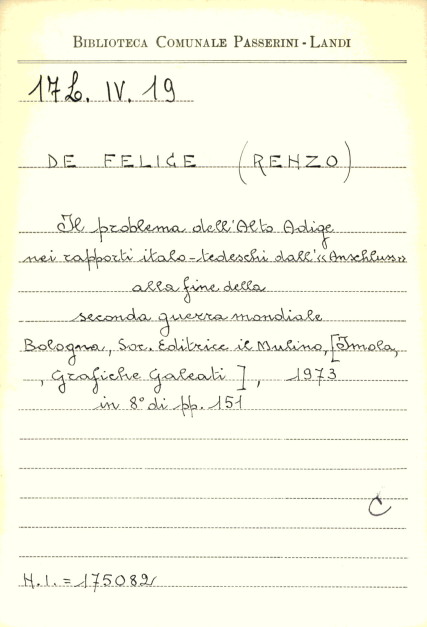 BIBLIOTECA COMUNALE PASSERINI - LANDI
17L. IV. 19
DE FELICE (RENZO)
Il problema dell'Alto Adige
nei rapporti italo-tedeschi dall'«Anschluss»
alla fine della
seconda guerra mondiale
Bologna, Soc. Editrice il Mulino, [Imola,
, Grafiche Galeati], 1973
in 8° di pp. 151
C
N.I. = 175082